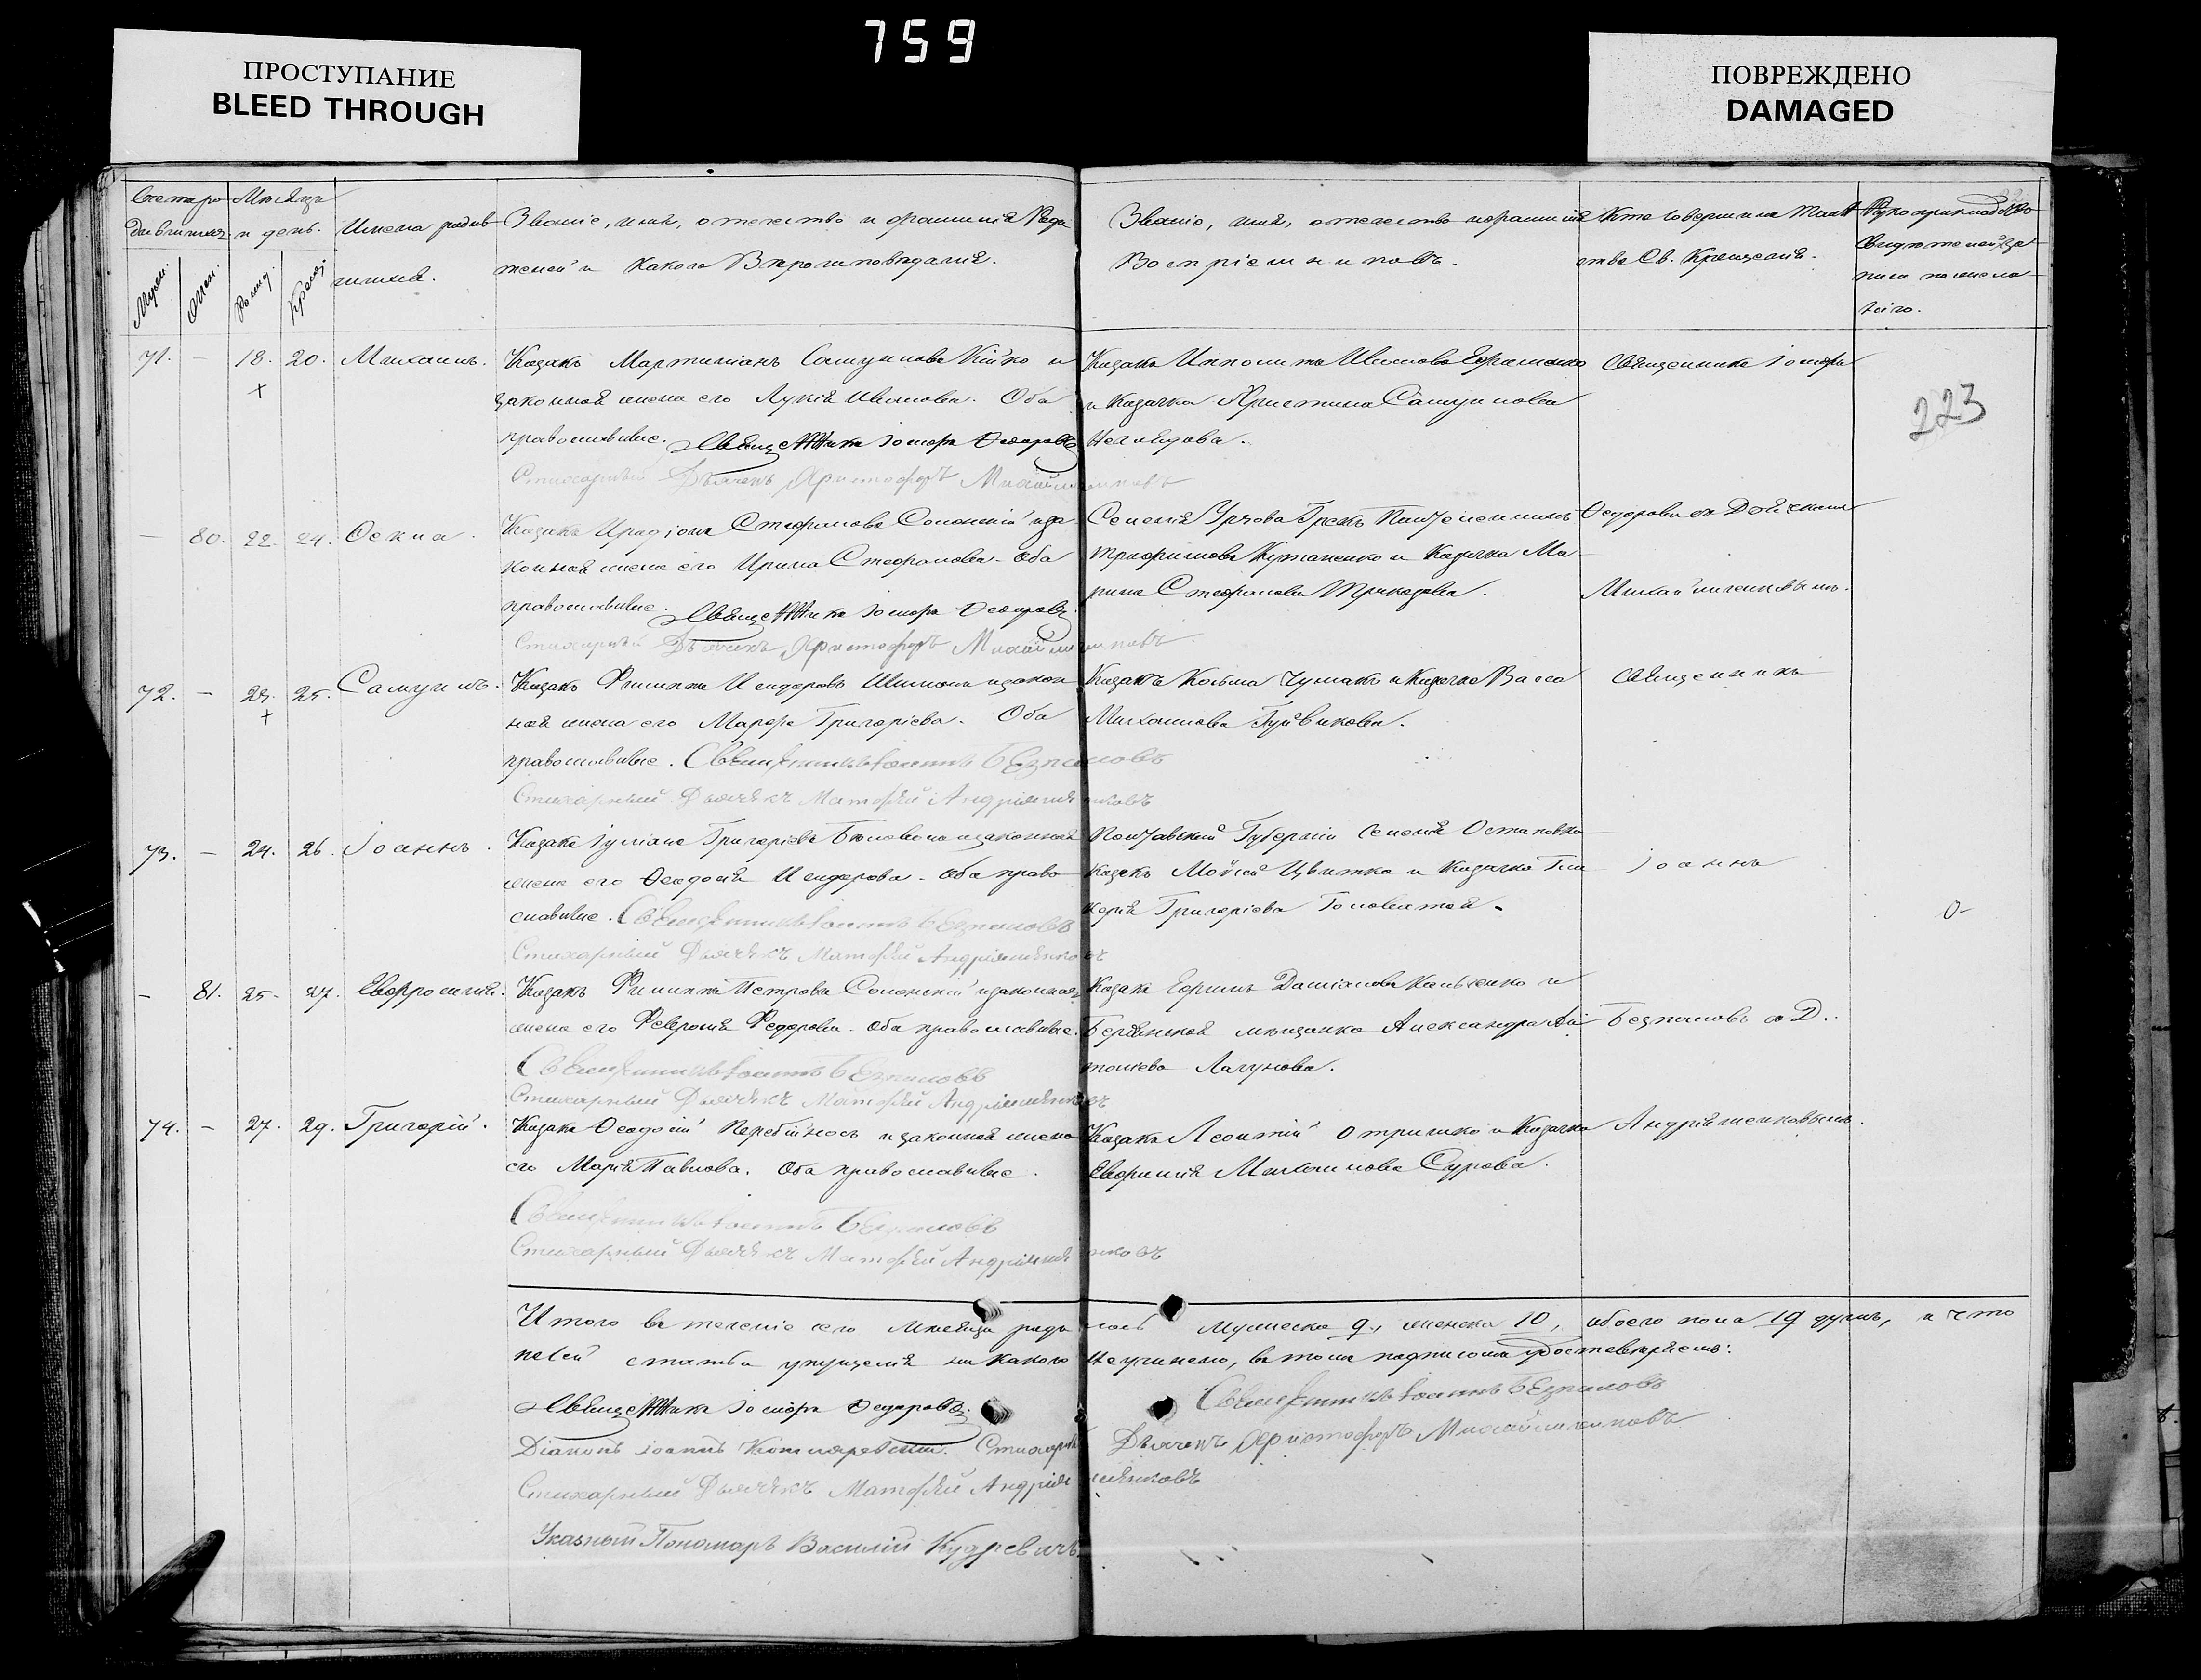 759
ПРОСТУПАНИЕ
BLEED THROUGH
ПОВРЕЖДЕНО
DAMAGED
Счетъ ро
дившихся
Мѣсяцъ
и день.
Муж.
Жен.
Рожд.
Крещ.
Имена родив
шихся.
Званіе, имя, отечество и фамилія Роди
телей и какого Вѣроисповѣданія.
Званіе, имя, отечество и фамилія
Воспріемниковъ.
Кто совершилъ Таин
ство Св. Крещенія.
Рукоприкладство
Свидѣтелей за
писи по жела
нію.
223
71. — 18. 20. Михаилъ.
Козакъ Мартиніанъ Самуилова Кійко и
законная жена его Лукія Иванова. Оба
православные. Священникъ Іосифъ Ѳедоровъ
Стихарный Дьячекъ Христофоръ Михайличенковъ
Козакъ Ипполитъ Ивановъ Ефименко
и Козачка Христина Самуилова
Священникъ Іосифъ
— 80. 22. 24.
Козакъ Иродіонъ Стефановъ Солонскій и за
конная жена его Ирина Стефанова. Оба
православные. Священникъ Іосифъ Ѳедоровъ.
Стихарный Дьячекъ Христофоръ Михайличенковъ.
Селенія
и Козачка Ма
рина Стефанова
Ѳедоровъ съ Дьячкомъ
Михайличенковымъ.
72. — 23. 25. Самуилъ.
Козакъ Филиппъ Исидоровъ Шимонъ и закон
ная жена его Марфа Григоріева. Оба
православные. Священникъ Іоаннъ Безпаловъ
Стихарный Дьячекъ Матфѣй Андріяшенковъ
Козакъ Косьма Чумакъ и Козачка Васса
Михаилова
Священникъ
73. — 24. 26. Іоаннъ.
Козакъ Іуліанъ Григоріевъ и законная
жена его Ѳеодосія Исидорова. Оба право
славные. Священникъ Іоаннъ Безпаловъ
Стихарный Дьячекъ Матфѣй Андріяшенковъ
Полтавской Губерніи Селенія Остаповки
Козакъ Мойсей Цвитка и Козачка Гли
керія Григоріева Головатая.
Іоаннъ
— 81. 25. 27. Евфросинія.
Козакъ Филиппъ Петровъ Солонскій и законная
жена его Февронія Федорова. Оба православные.
Священникъ Іоаннъ Безпаловъ
Стихарный Дьячекъ Матфѣй Андріяшенковъ
Козакъ Ефимъ Даміановъ и
Бердянская мѣщанка Александра Ан
тоніева Лагунова.
Безпаловъ съ Д.
74. — 27. 29. Григорій.
Козакъ Ѳеодосій Перебійносъ и законная жена
его Марія Павлова. Оба православные.
Священникъ Іоаннъ Безпаловъ
Стихарный Дьячекъ Матфѣй Андріяшенковъ
Козакъ Леонтій Отришко и Козачка
Евфимія Михаилова Сурова.
Андріяшенковымъ.
Итого въ теченіе сего Мѣсяца роди лось Мужеска 9, женска 10, обоего пола 19 душъ, и что
по сей статьѣ упущенія никакого не учинено, въ томъ подписомъ удостовѣряемъ:
Священникъ Іосифъ Ѳедоровъ. Священникъ Іоаннъ Безпаловъ
Діаконъ Іоаннъ Котляревскій. Стихарный Дьячекъ Христофоръ Михайличенковъ
Стихарный Дьячекъ Матфѣй Андріяшенковъ
Указный Пономарь Василій Кудревичъ